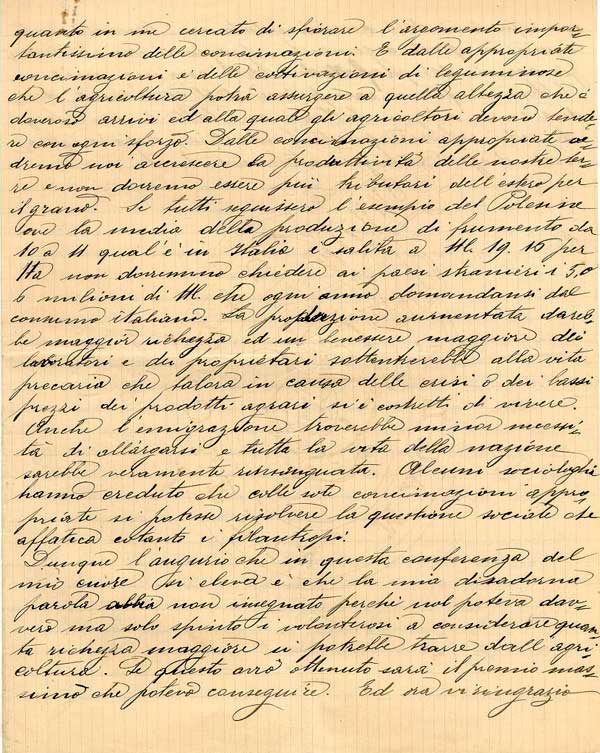 quanto in me cercato di sfiorare l'argomento impor-
tantissimo delle concimazioni. E dalle appropriate
concimazioni e delle coltivazioni di leguminose
che l'agricoltura potrà assurgere a quella altezza che è
doveroso arrivi ed alla quale gli agricoltori devono tende-
re con ogni sforzo. Dalle concimazioni appropriate ve-
dremo noi accrescere la produttività delle nostre ter-
re e non dovremo essere più tributari dell'estero per
il grano. Se tutti seguissero l'esempio del Polesine
ove la media della produzione di frumento da
10 a 11 qual'è in Italia è salita a Hl. 19.16 per
Ha non dovremmo chiedere ai paesi stranieri i 5, o
6 milioni di Hl. che ogni anno domandansi dal
consumo italiano. La produzione aumentata dareb-
be maggior richezza ed un benessere maggiore dei
lavoratori e dei proprietari sottentrerebbe alla vita
precaria che talora in causa delle crisi o dei bassi
prezzi dei prodotti agrari si è costretti di vivere.
Anche l'emigrazione troverebbe minor necessi-
tà di allargarsi e tutta la vita della nazione
sarebbe veramente rinsanguata. Alcuni sociologhi
hanno creduto che colle sole concimazioni appro
priate si potesse risolvere la questione sociale che
affatica cotanto i filantropi.
Dunque l'augurio che in questa conferenza dal
mio cuore si eleva è che la mia disadorna
parola abbia non insegnato perchè nol poteva dav-
vero ma solo spinto i volenterosi a considerare quan
ta richezza maggiore si potrebbe trarre dall'agri
coltura. Se questo avrò ottenuto sarà il premio mas-
simo che potevo conseguire. Ed ora vi ringrazio